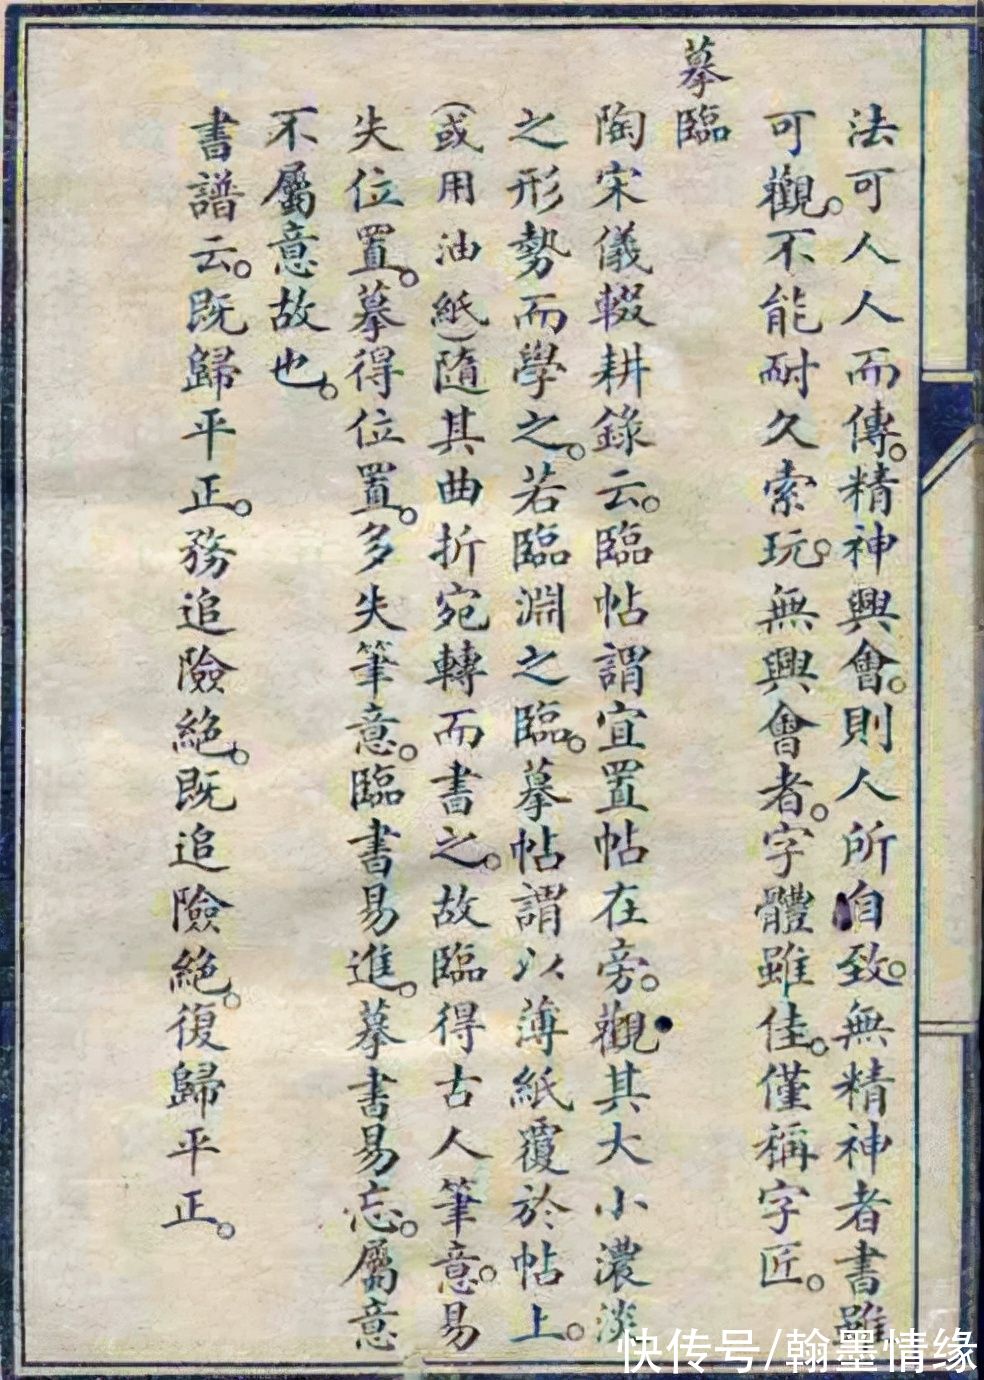 法可人人而傳。精神興會。則人所自致。無精神者書雖
可觀。不能耐久索玩。無興會者。字體雖佳。僅稱字匠。
摹臨
陶宋儀輟耕錄云。臨帖謂宜置帖在旁。觀其大小濃淡
之形勢而學之。若臨淵之臨。摹帖謂以薄紙覆於帖上。
(或用油紙)隨其曲折宛轉而書之。故臨得古人筆意。易
失位置。摹得位置。多失筆意。臨書易進。摹書易忘。屬意
不屬意故也。
書譜云。既歸平正。務追險絕。既追險絕。復歸平正。
快传号/翰墨情缘